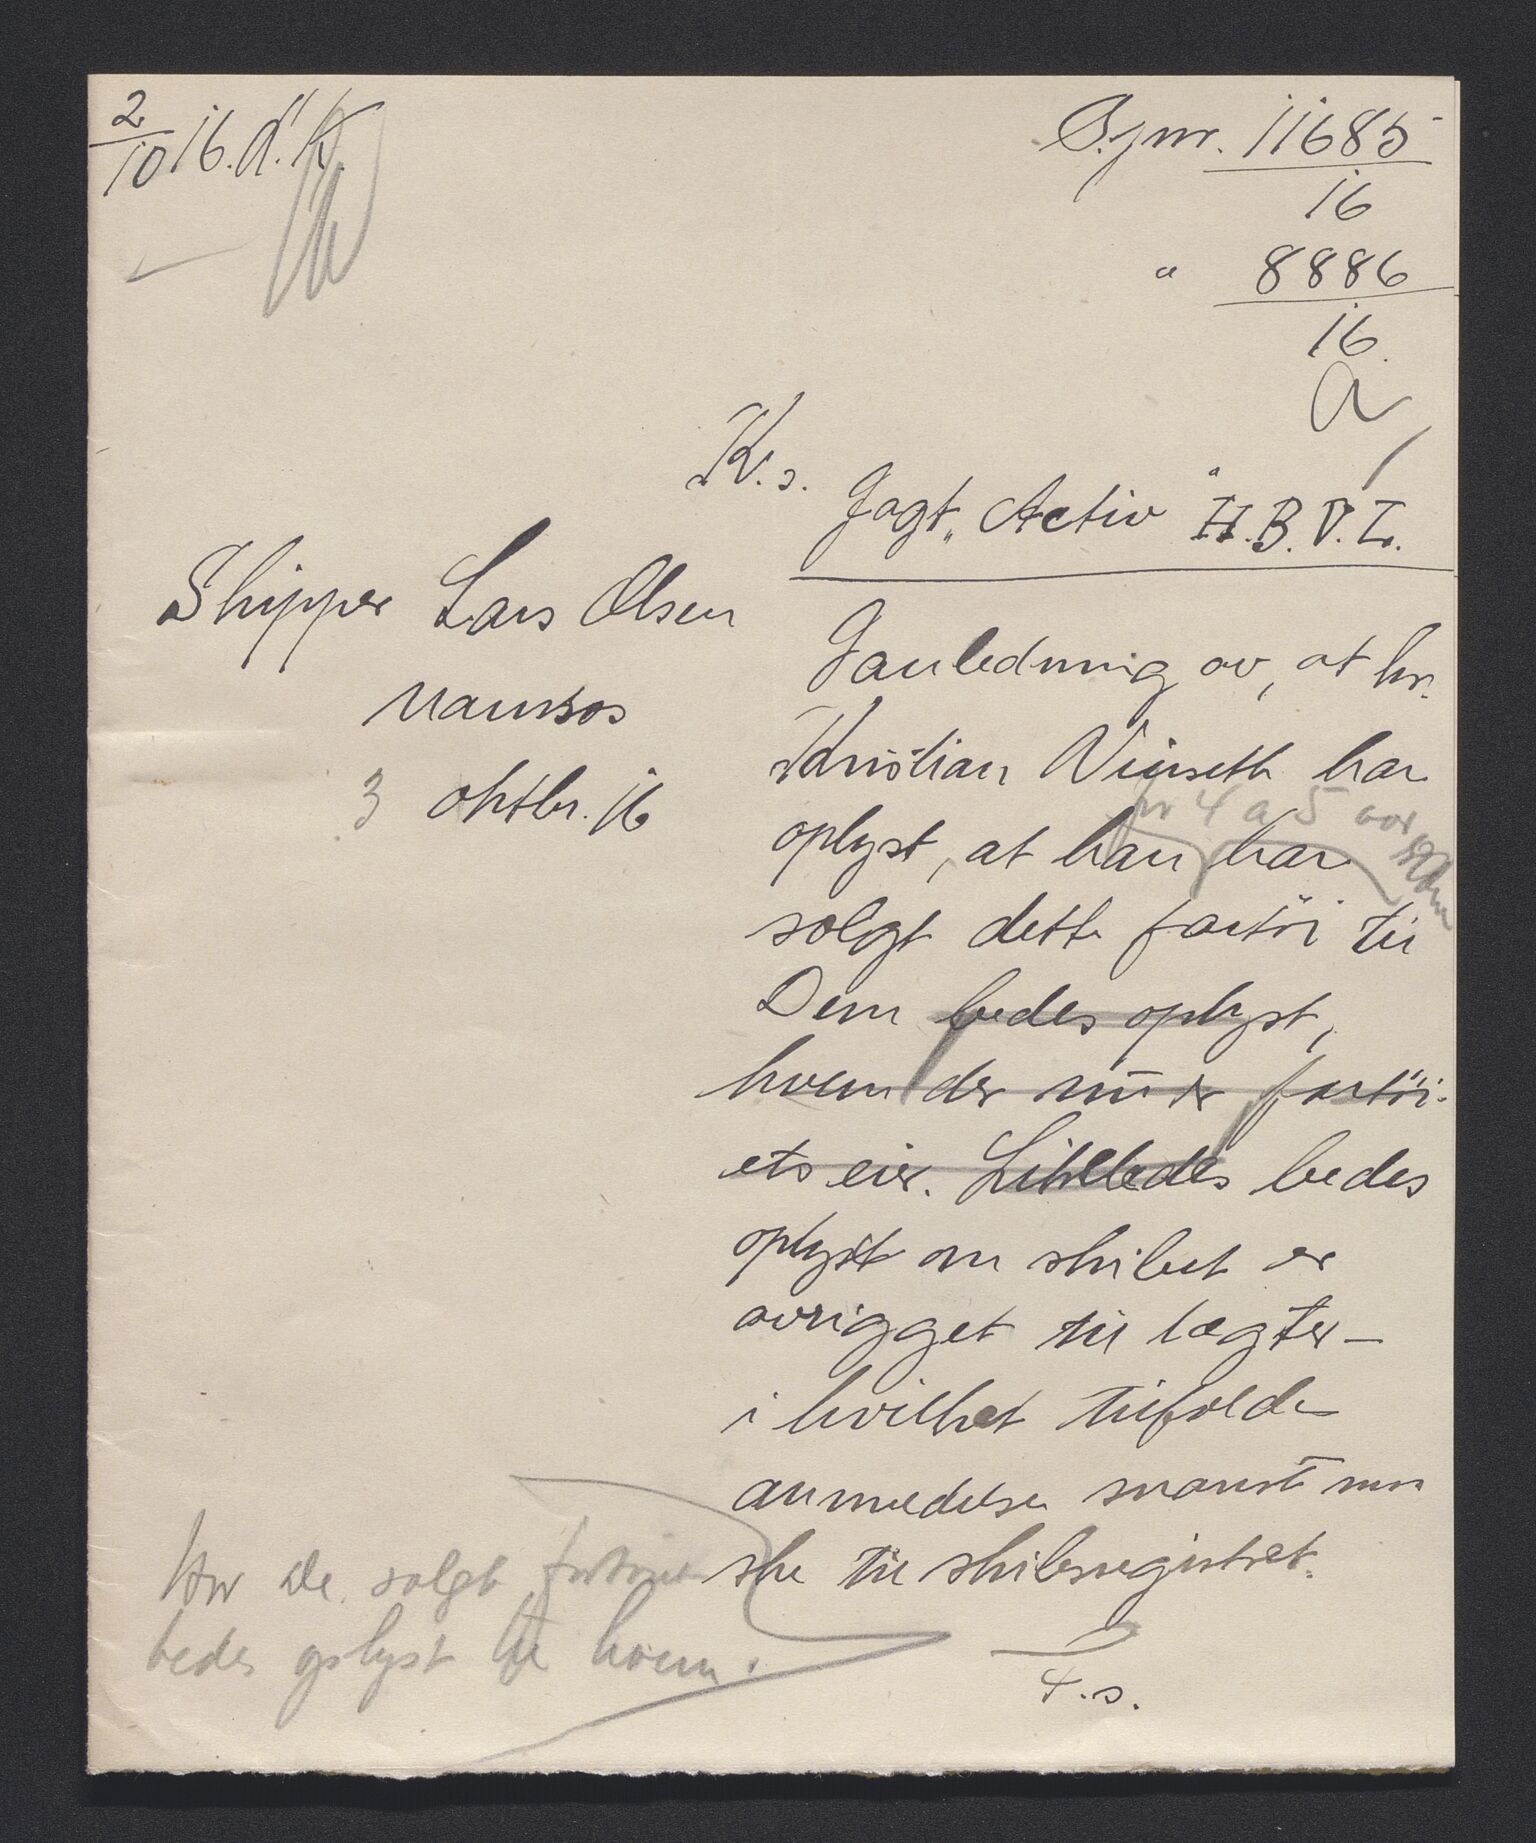 2/10 16. d. K
B.jnr. 11685/16
" 8886/16
a
K.s.
Jagt „Activ" H.B.V.L.
Skipper Lars Olsen
Namsos
3 oktbr. 16
I anledning av, at hr.
Kristian Vinseth har
oplyst, at han har
for 4 a 5 aar siden
solgt dette fartöi til
Dem bedes oplyst,
hvem der nu er fartöi-
ets eier. Likeledes bedes
oplyst om skibet er
avrigget til lægter –
i hvilket tilfælde
anmeldelse snarest maa
ske til skibsregistret.
Har De solgt fartöiet
bedes oplyst til hvem.
F.s.